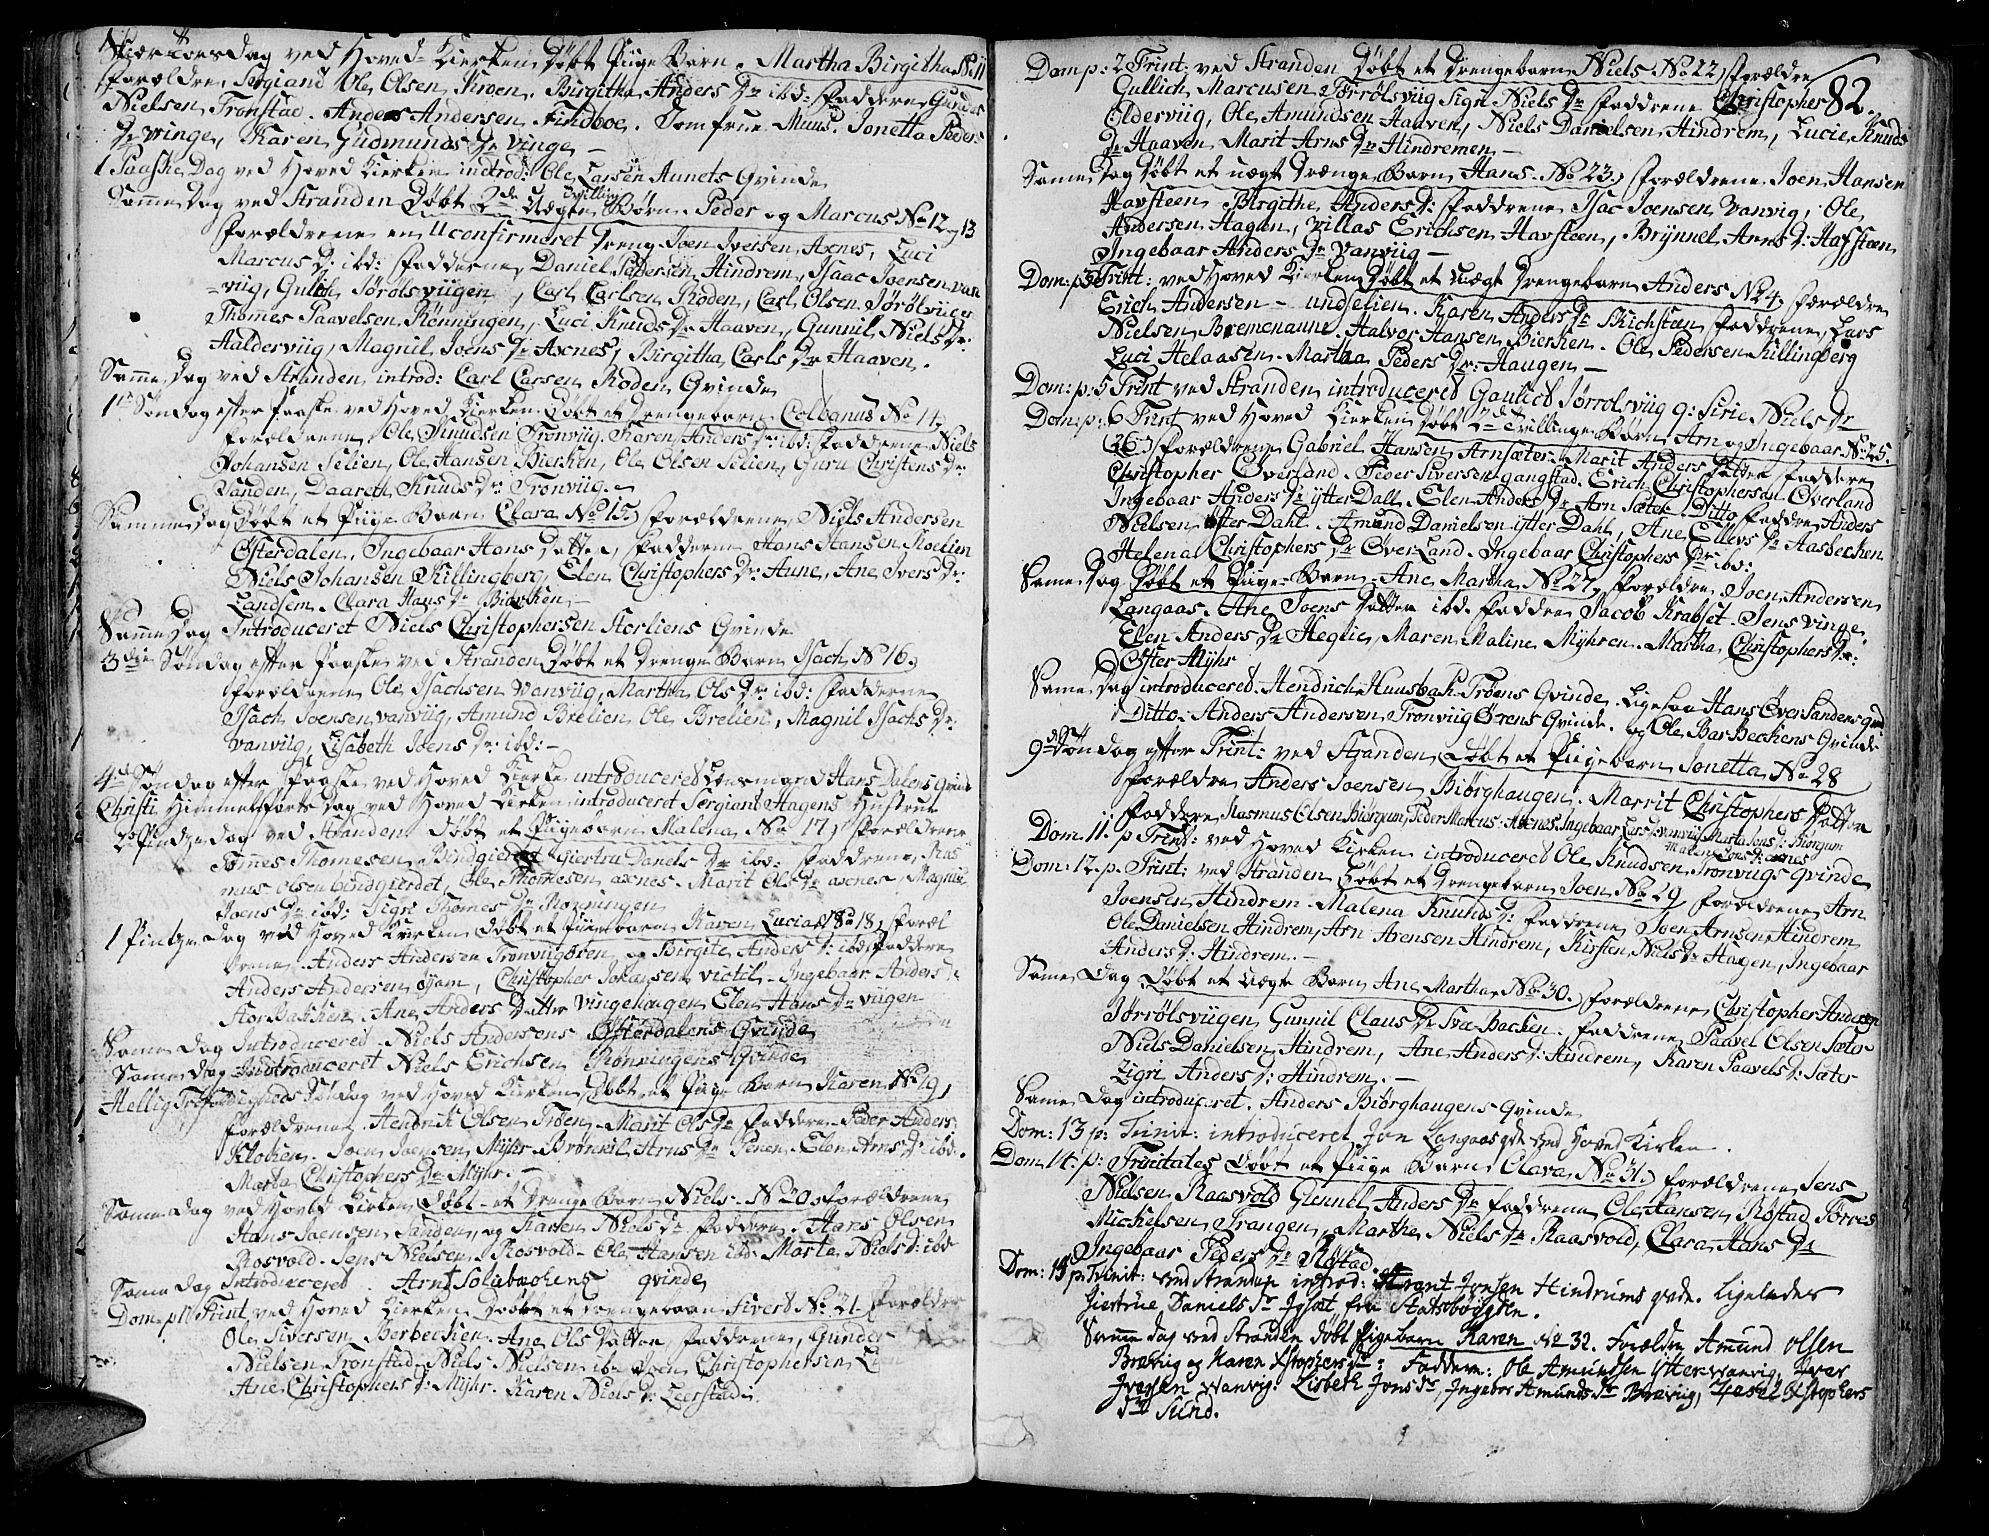 Skiær Torsdag ved Hoved-Kirken Døbt Piige Barn. Martha Birgitha No. 11
Forældre Sergiand Ole Olsen Kroen. Birgitha Anders Dr ibd: Faddrene Gunder
Nielsen Tronstad. Anders Andersen Findboe. Jomfrue Muus. Jonetta Peders
Dr Vinge, Karen Gudmunds Dr Vinge
1 Paaske Dag ved Hoved Kirken introd: Ole Larsen Aunets Qvinde
Samme Dag ved Stranden Døbt 2de Uægte Tvilling Børn Peder og Marcus No 12 og 13
Forældrene en Uconfirmeret Dreng Joen Iversen Axnes, Luci
Marcus Dr: ibd: Fadderne, Daniel Pedersen Hindrem, Isaac Joensen Van
=viig, Gulich Jørølsviigen, Carl Carlsen Roden, Carl Olsen Jørølsviigen
Thomes Paavelsen Rønningen, Luci Knuds Dr Haaven, Gunnil Niels Dr:
Aalderviig, Magnil Joens Dr Axnes, Birgitha Carls Dr Haaven.
Samme Dag ved Stranden introd: Carl Carsen Roden Qvinde
1te Søndag efter Paaske ved Hoved Kirken Døbt et Drengebarn Colbanus No 14,
Forældrene Ole Knudsen Tronviig. Karen Anders Dr: ibd: Faddrene Niels
Johansen Selien, Ole Hansen Bierken, Ole Olsen Selien, Guru Christens Dr:
Sanden, Daareth Knuds Dr: Tronviig.
Samme Dag Døbt et Piige Barn Clara No 15. Forældrene, Niels Andersen
Østerdalen, Ingebaar Hans Datter, Fadderne Hans Hansen Moelien
Niels Johansen Killingberg, Elen Christophers Dr: Aune, Ane Ivers Dr:
Landsem. Clara Hans Dr Bierken
Samme Dag Introduceret Niels Christophersen Storliens Qvinde
3die Søndag efter Paaske ved Stranden Døbt et Drenge Barn Isach No 16,
Forældrene Ole Isachsen Vanviig, Martha Ols Dr: ibd: Fadderne
Isach Joensen Vanviig, Amund Brelien, Ole Brelien, Magnil Isachs Dr:
Vanviig, Lisabeth Joens Dr: ibd:
4de Søndag efter Paaske ved Hoved Kirke introduceret Lænsmand Hans Dalens Qvinde
Christi Himmelfarts Dag ved Hoved Kirken introduceret Sergiant Hagens Hustrue
2 Pindse dag ved Stranden døbt et Piigebarn Malena No 17, Forældrene
Tønnes Thomesen Bindgierdet Giertru Daniels Dr ibd: Faddrene, Ras
mus Olsen bindgierdet, Ole Thomesen axnes. Marit Ols Dr axnes, Magnil
Joens Dr ibd: Sigri Thomes Dr Rønningen
1 Pintze dag ved Hoved Kirken døbt et Piigebarn Karen Lucia No 18, Foræl
drene. Anders Andersen Tronviigøren og Birgite Anders Dr: ibd: Faddere
Anders Andersen øyam, Christopher Johansen victil. Ingebaar Anders Dr
Storbakken. Ane Anders Datter Vingehaugen Elen Hans Dr viigen
Same Dag Introduceret Niels Andersens Østerdalens Qvinde
Same dag Introduceret Niels Erichsen Rønningens qvinde
Hellig Trefoldigheds Søndag ved Hoved Kirken Døbt et Piige Barn Karen No 19,
Forældrene, Hendrik Olsen Trøen. Marit Ols Dr Faddere Peder Anders:
Kloken. Joen Joensen Myhr. Brønnil Arns Dr Penen. Elen Arns Dr: ibd.
Marta Christophers Dr Myhr.
Same Dag ved Hoved Kirken Døbt et Drenge Barn Niels. No 20, Forældrene
Hans Joensen Sanden og Karen Niels Dr Faddere. Hans Olsen
Rosvold. Jens Nielsen Rosvold. Ole Hansen ibd. Marta Niels Dr: ibd
Same dag Introduceret Arnt Solabachens qvinde
Dom. p 1 Trint, ved Hoved Kirken Døbt et Drengebarn Sivert No. 21. Forældre
Ole Siversen Berbecken. Ane Ols Datter, Faddrene, Gunder
Nielsen Tronstad. Niels Nielsen ibd Joen Christophersen
Ane Christophers Dr: Myhr. Karen Niels Dr: Leerstad.
82
Dom p: 2 Trint: ved Stranden Døbt et Drengebarn Niels No. 22, Forældre
Gullich Marcusen Jørrølsviig Sigri Niels Dr Faddrene Christopher
Olderviig, Ole Amundsen Haaven, Niels Danielsen Hindrem, Lucie Knuds
Dr Haaven Marit Arns Dr Hindremen
Same Dag Døbt et uægt Drænge Barn Hans. No 23. Forældrene Joen Hansen
Havsteen Birgithe Anders Dr: Faddrene Isac Joensen Vanvig, Ole
Andersen Hagen, Villas Erichsen Havsteen, Brynnel Arns Dr: Hafsteen
Ingebaar Anders Dr Vanviig
Dom: p 3 Trint: ved Hoved Kirken Døbt et Uægt Drengebarn Anders No 24, Forældre
Erich Andersen - undselien. Karen Anders Dr Skichsteen Faddrene, Lars
Nielsen Bremenaune. Halvor Hansen Bierken. Ole Pedersen Killingberg
Luci Helaasen. Martha Peders Dr: Haugen
Dom: p: 5 Trint ved Stranden introduceret Gaulics Jørrolsviig q: Sirie Niels Dr
Dom: p: 6 Trint ved Hoved Kirken Døbt 2de Tvillinge Børn Arn og Ingebaar No 25.
(26.) Forældrene Gabriel Hansen Arnsæter. Marit Anders Datter Faddere
Christopher Øverland. Peder Siversen gangstad. Erich Christophersen Overland
Ingebaar Anders Dr ytter Dall. Elen Anders Dr Arn Sæter. Ditto Faddre Anders
Nielsen Øfter Dahl. Amund Danielsen ytter Dahl, Ane Ellevs Dr Aasbecken
Helena Christophers Dr Øver Land. Ingebaar Christophers Dr: ibd:
Same Dag Døbt et Piige-Barn. Ane Martha No. 27, Forældre Joen Andersen
Langaas. Ane Joens Datter ibd. Faddre Jacob Krabset. Jens Vinge,
Elen Anders Dr Heglie, Maren Maline Myhren. Martha Christophers Dr:
Øfter Myhr
Same Dag introduceret. Hendrich Huusbach Trøens Qvinde. Ligesaa Hans Øver Sandens qvd
Ditto. Anders Andersen Tronviig Ørens Qvinde. og Ole Bar Beckens Qvinde
9de Søndag efter Trint: ved Stranden Døbt et Piigebarn Jonetta No 28
Forældre Anders Joensen Biørghaugen. Marrit Christophers Datter
Faddere Rasmus Olsen Biørgum, Peder Marcus: Axnes, Ingebaar Lars Dr vanviig Marta Jons Dr: Biørgum
Malena Jons Dr: axnes
Dom. 11. p Trint: ved Hoved Kirken introduceret Ole Knudsen Tronvugs Qvinde
Dom: 12. p. Trint: ved Stranden Døbt et Drengebarn Joen No 29 Forældrene Arn
Joensen Hindrem. Malena Knuds Dr: Faddrene Joen Arnsen Hindrem
Ole Danielsen Hindrem, Arn Arensen Hindrem, Kirsten Niels Dr Hagen, Ingebaar
Anders Dr: Hindrem.
Same Dag Døbt et Uægte Barn Ane Martha No. 30. Forældrene Christopher Andersen
Jørrolsviigen Gunnil Claus Dr Svee-Backen. Faddrene Paavel Olsen Sæter
Niels Danielsen Hindrem, Ane Anders Dr: Hindrem, Karen Paavels Dr: Sæter
Zigri Anders Dr: Hindrem.
Same Dag introduceret. Anders Biørghaugens Qvinde
Dom: 13 p: Trinit: introduceret Jon Langaas qde ved Hoved Kirken.
Dom. 14. p: Trinitates Døbt et Piige Barn Clara No. 31. Forældrene Jens
Nielsen Raasvold Gunnel Anders Dr Faddrene Ole Hansen Røstad Tørres
Michelsen Trangen, Marthe Niels Dr Raasvold, Clara Hans Dr
Ingebaar Peders Dr Røstad.
Dom: 15 p: Trinit: ved Stranden introd: Arant Jonsen Hindrums qvde. Ligeledes
Giertrue Daniels Dr Igsæt fra Statsboigden.
Samme dag ved Stranden døbt Pigebarn Karen No 32. Forældre Amund Olsen
Brævig og Karen Xstophers Dr: Faddere: Ole Amundsen Ytter Vanvig, Iver
Iversen Vanvig: Lisbeth Jons Dr, Ingebor Amunds Dr Brævig, Xstophers
Dr Sund.